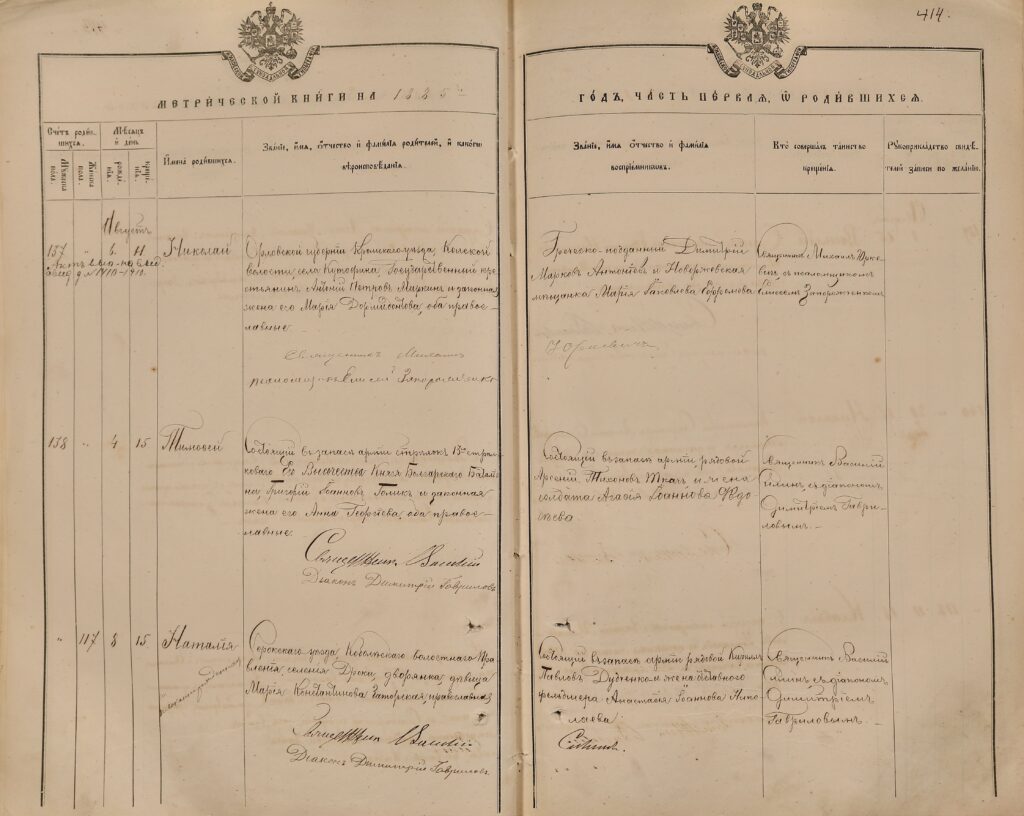 414.
МЕТРИЧЕСКОЙ КНИГИ НА 1885й
ГОДЪ, ЧАСТЬ ПЕРВАЯ, Ѿ РОДИВШИХСЯ.
Счетъ родившихся.
Мужеска пола.
Женска пола.
Мѣсяцъ и день
рожденія.
крещенія.
Имена родившихся.
Званіе, имя, отчество и фамилія родителей, и какого
вѣроисповѣданія.
Званіе, имя отчество и фамилія
воспріемниковъ.
Кто совершалъ таинство
крещенія.
Рукоприкладство свидѣтелей записи по желанію.
Августъ
137 " 6 11 Николай
Орловской губерніи Кромскаго уѣзда,
волости, села Государственный кре-
стьянинъ Петровъ Маркинъ и законная
жена его Марія оба право-
славные.
Священникъ Михаилъ
Елисей Запорожченко
Греческо-подданный Димитрій
Марковъ Антоновъ и
мѣщанка Марія Іаковлева
Священникъ Михаилъ Юрке-
вичъ, съ псаломщикомъ
Елисеемъ Запорожченкомъ
138 " 4 15 Тимоѳей
Состоящій въ запасѣ арміи стрѣлокъ 13го стрѣл-
коваго Его Высочества Князя Болгарскаго Баталіо-
на, Григорій Іоанновъ Голикъ и законная
жена его Анна Георгіева, оба право-
славные.
Священникъ Василій
Діаконъ Димитрій Гавриловъ
Состоящій въ запасѣ арміи, рядовой
Арсеній Тихоновъ Ткачъ и жена
солдата Агафія Іоаннова Ѳедо-
сѣева.
Священникъ Василій
Гилинъ, съ діакономъ
Димитріемъ Гаври-
ловымъ.
" 117 8 15 Наталія
Сорокскаго уѣзда, волостнаго Пра-
вленія, селенія Дроки, дворянка, дѣвица
Марія Константинова православная
Священникъ Василій
Діаконъ Димитрій Гавриловъ
Состоящій въ запасѣ арміи рядовой Кириллъ
Павловъ жена отставнаго
фельдшера Анастасія Іоаннова Нико-
лаева
Священникъ Василій
Гилинъ съ діакономъ
Димитріемъ
Гавриловымъ.